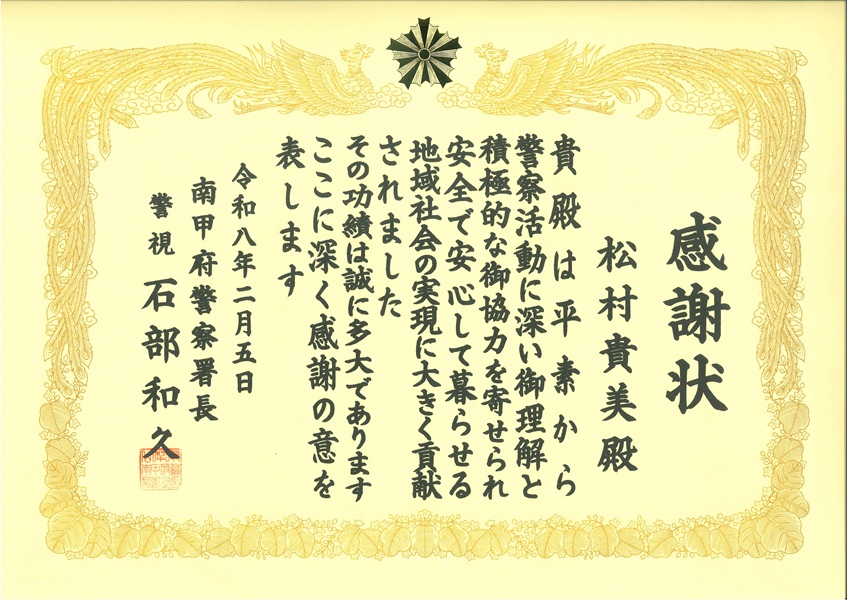 感謝状
松村貴美殿
貴殿は平素から
警察活動に深い御理解と
積極的な御協力を寄せられ
安全で安心して暮らせる
地域社会の実現に大きく貢献
されました
その功績は誠に多大であります
ここに深く感謝の意を
表します
令和八年二月五日
南甲府警察署長
警視 石部和久